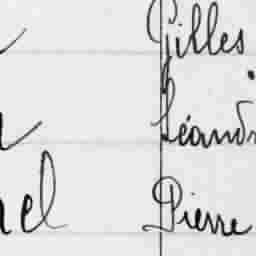 Gilles
Léandr
el Pierre